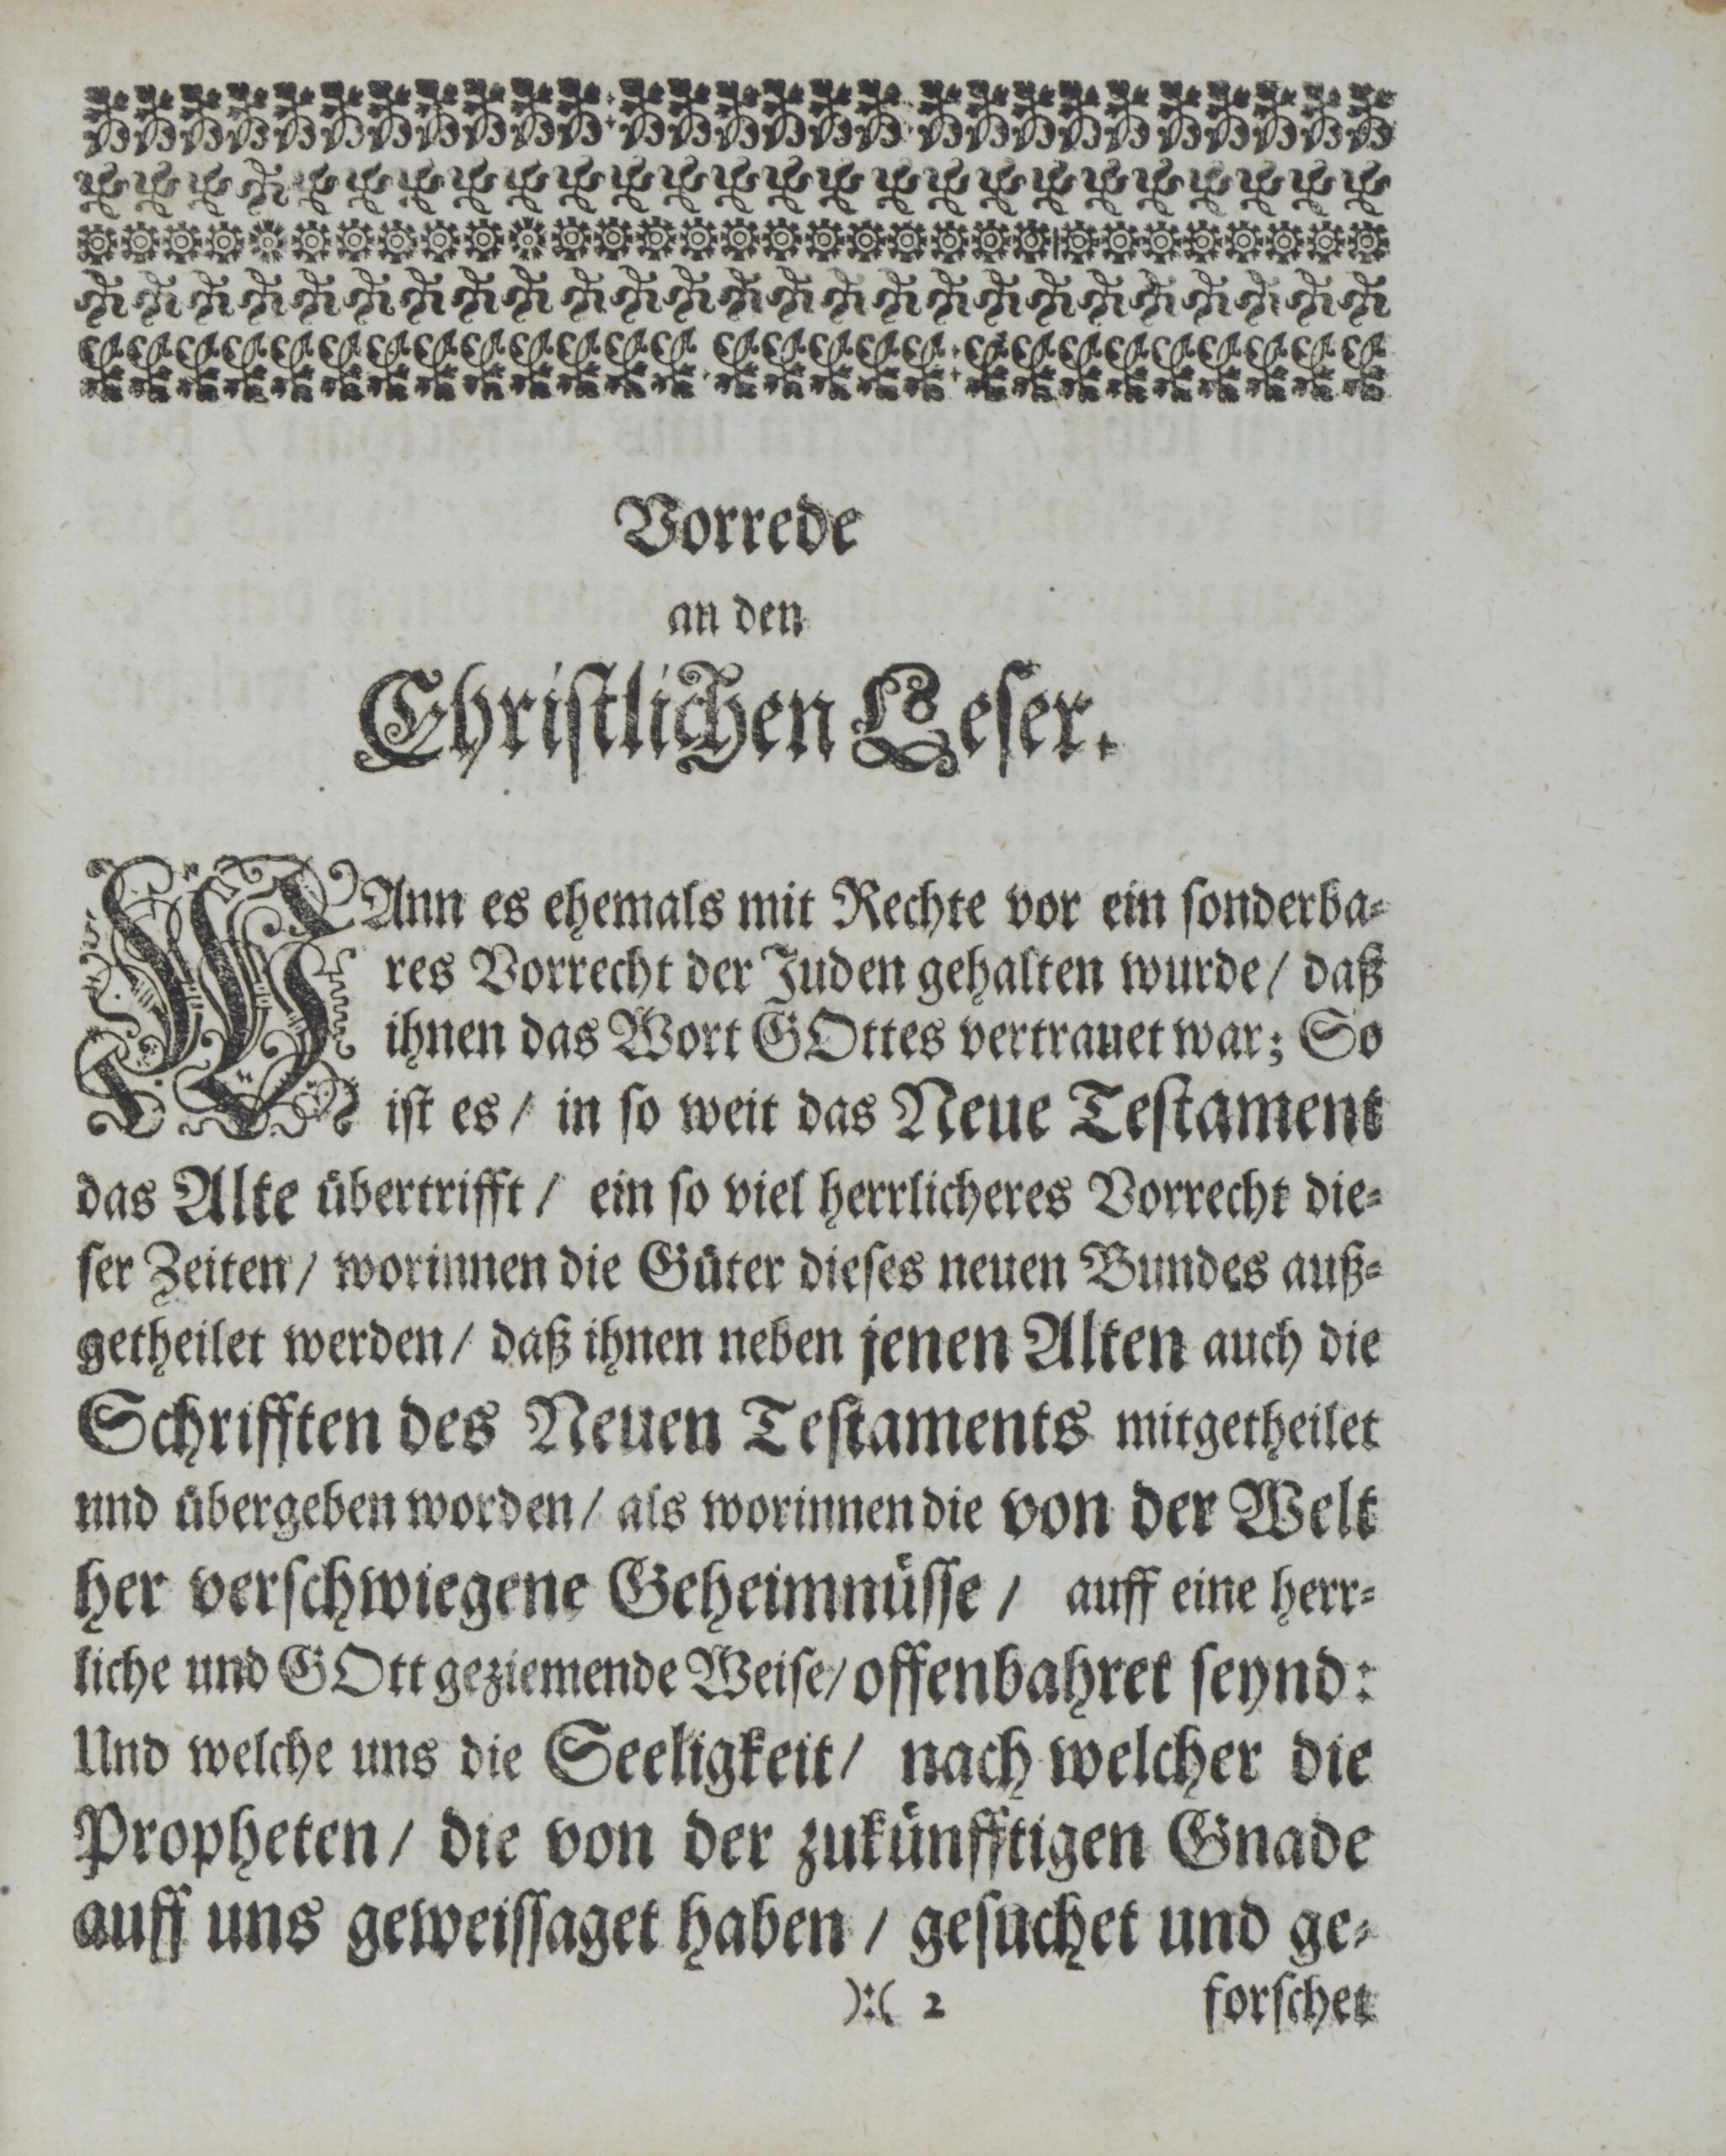 Vorrede
an den
Christlichen Leser.
WAnn es ehemals mit Rechte vor ein sonderba-
res Vorrecht der Juden gehalten wurde/ daß
ihnen das Wort GOttes vertrauet war; So
ist es/ in so weit das Neue Testament
das Alte übertrifft/ ein so viel herrlicheres Vorrecht die-
ser Zeiten/ worinnen die Güter dieses neuen Bundes auß-
getheilet werden/ daß ihnen neben jenen Alten auch die
Schrifften des Neuen Testaments mitgetheilet
und übergeben worden/ als worinnen die von der Welt
her verschwiegene Geheimnüsse/ auff eine herr-
liche und GOtt geziemende Weise/ offenbahret seynd:
Und welche uns die Seeligkeit/ nach welcher die
Propheten/ die von der zukünfftigen Gnade
auff uns geweissaget haben/ gesuchet und ge-
):( 2 forschet